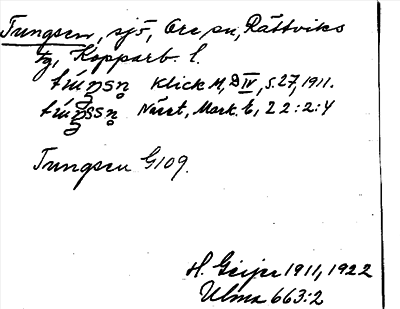 Tungsen, sjö, Ore sn, Rättviks
tg, Kopparb. l.
Klick M, D IV, s. 27, 1911.
Näset, Mark. E, 22:2:4
Tungsen G109.
H. Geijer 1911, 1922
Ulma 663:2